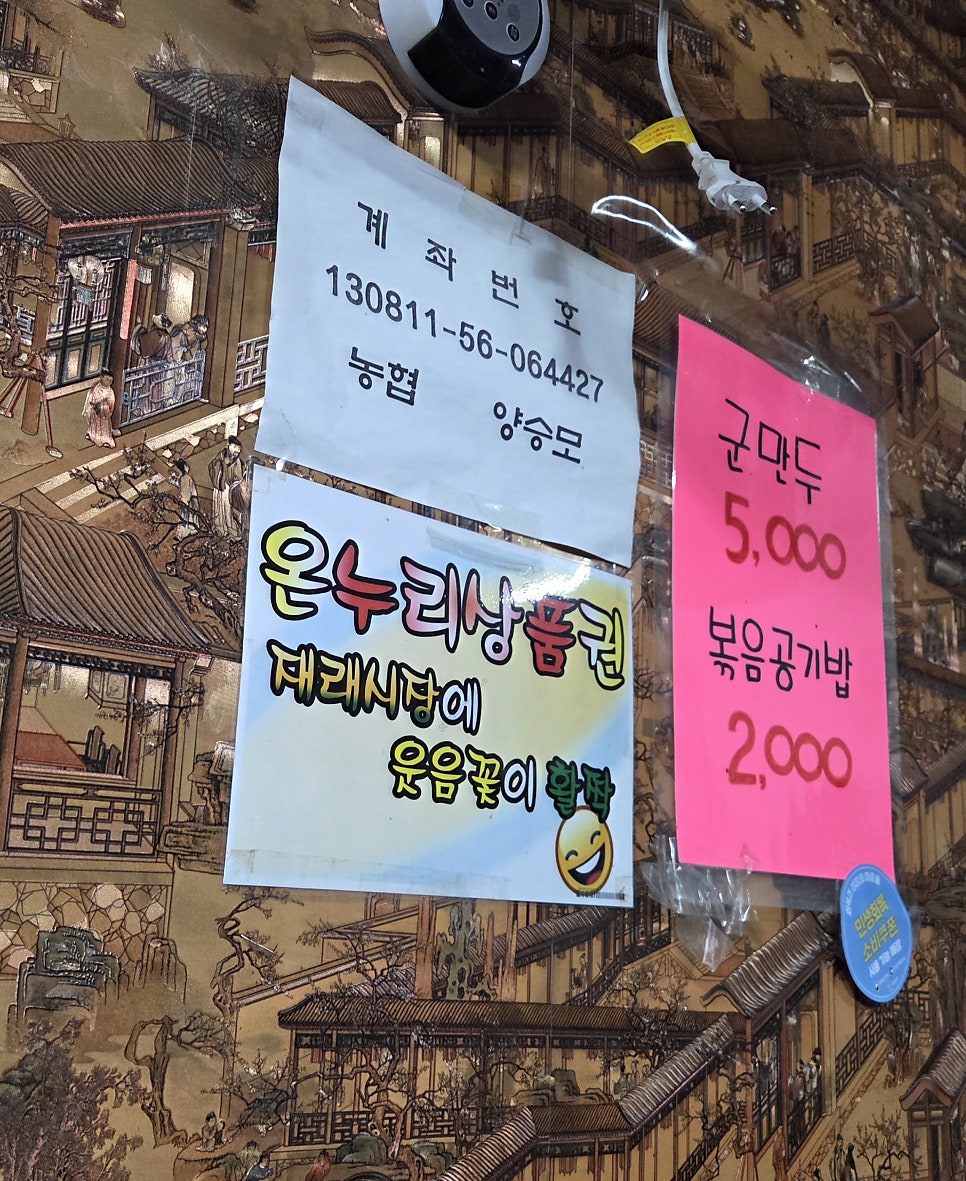 계좌번호
130811-56-064427
농협 양승모
온누리상품권
재래시장에
웃음꽃이 활짝
군만두
5,000
볶음공기밥
2,000
민생회복
소비쿠폰
사용 가능 매장